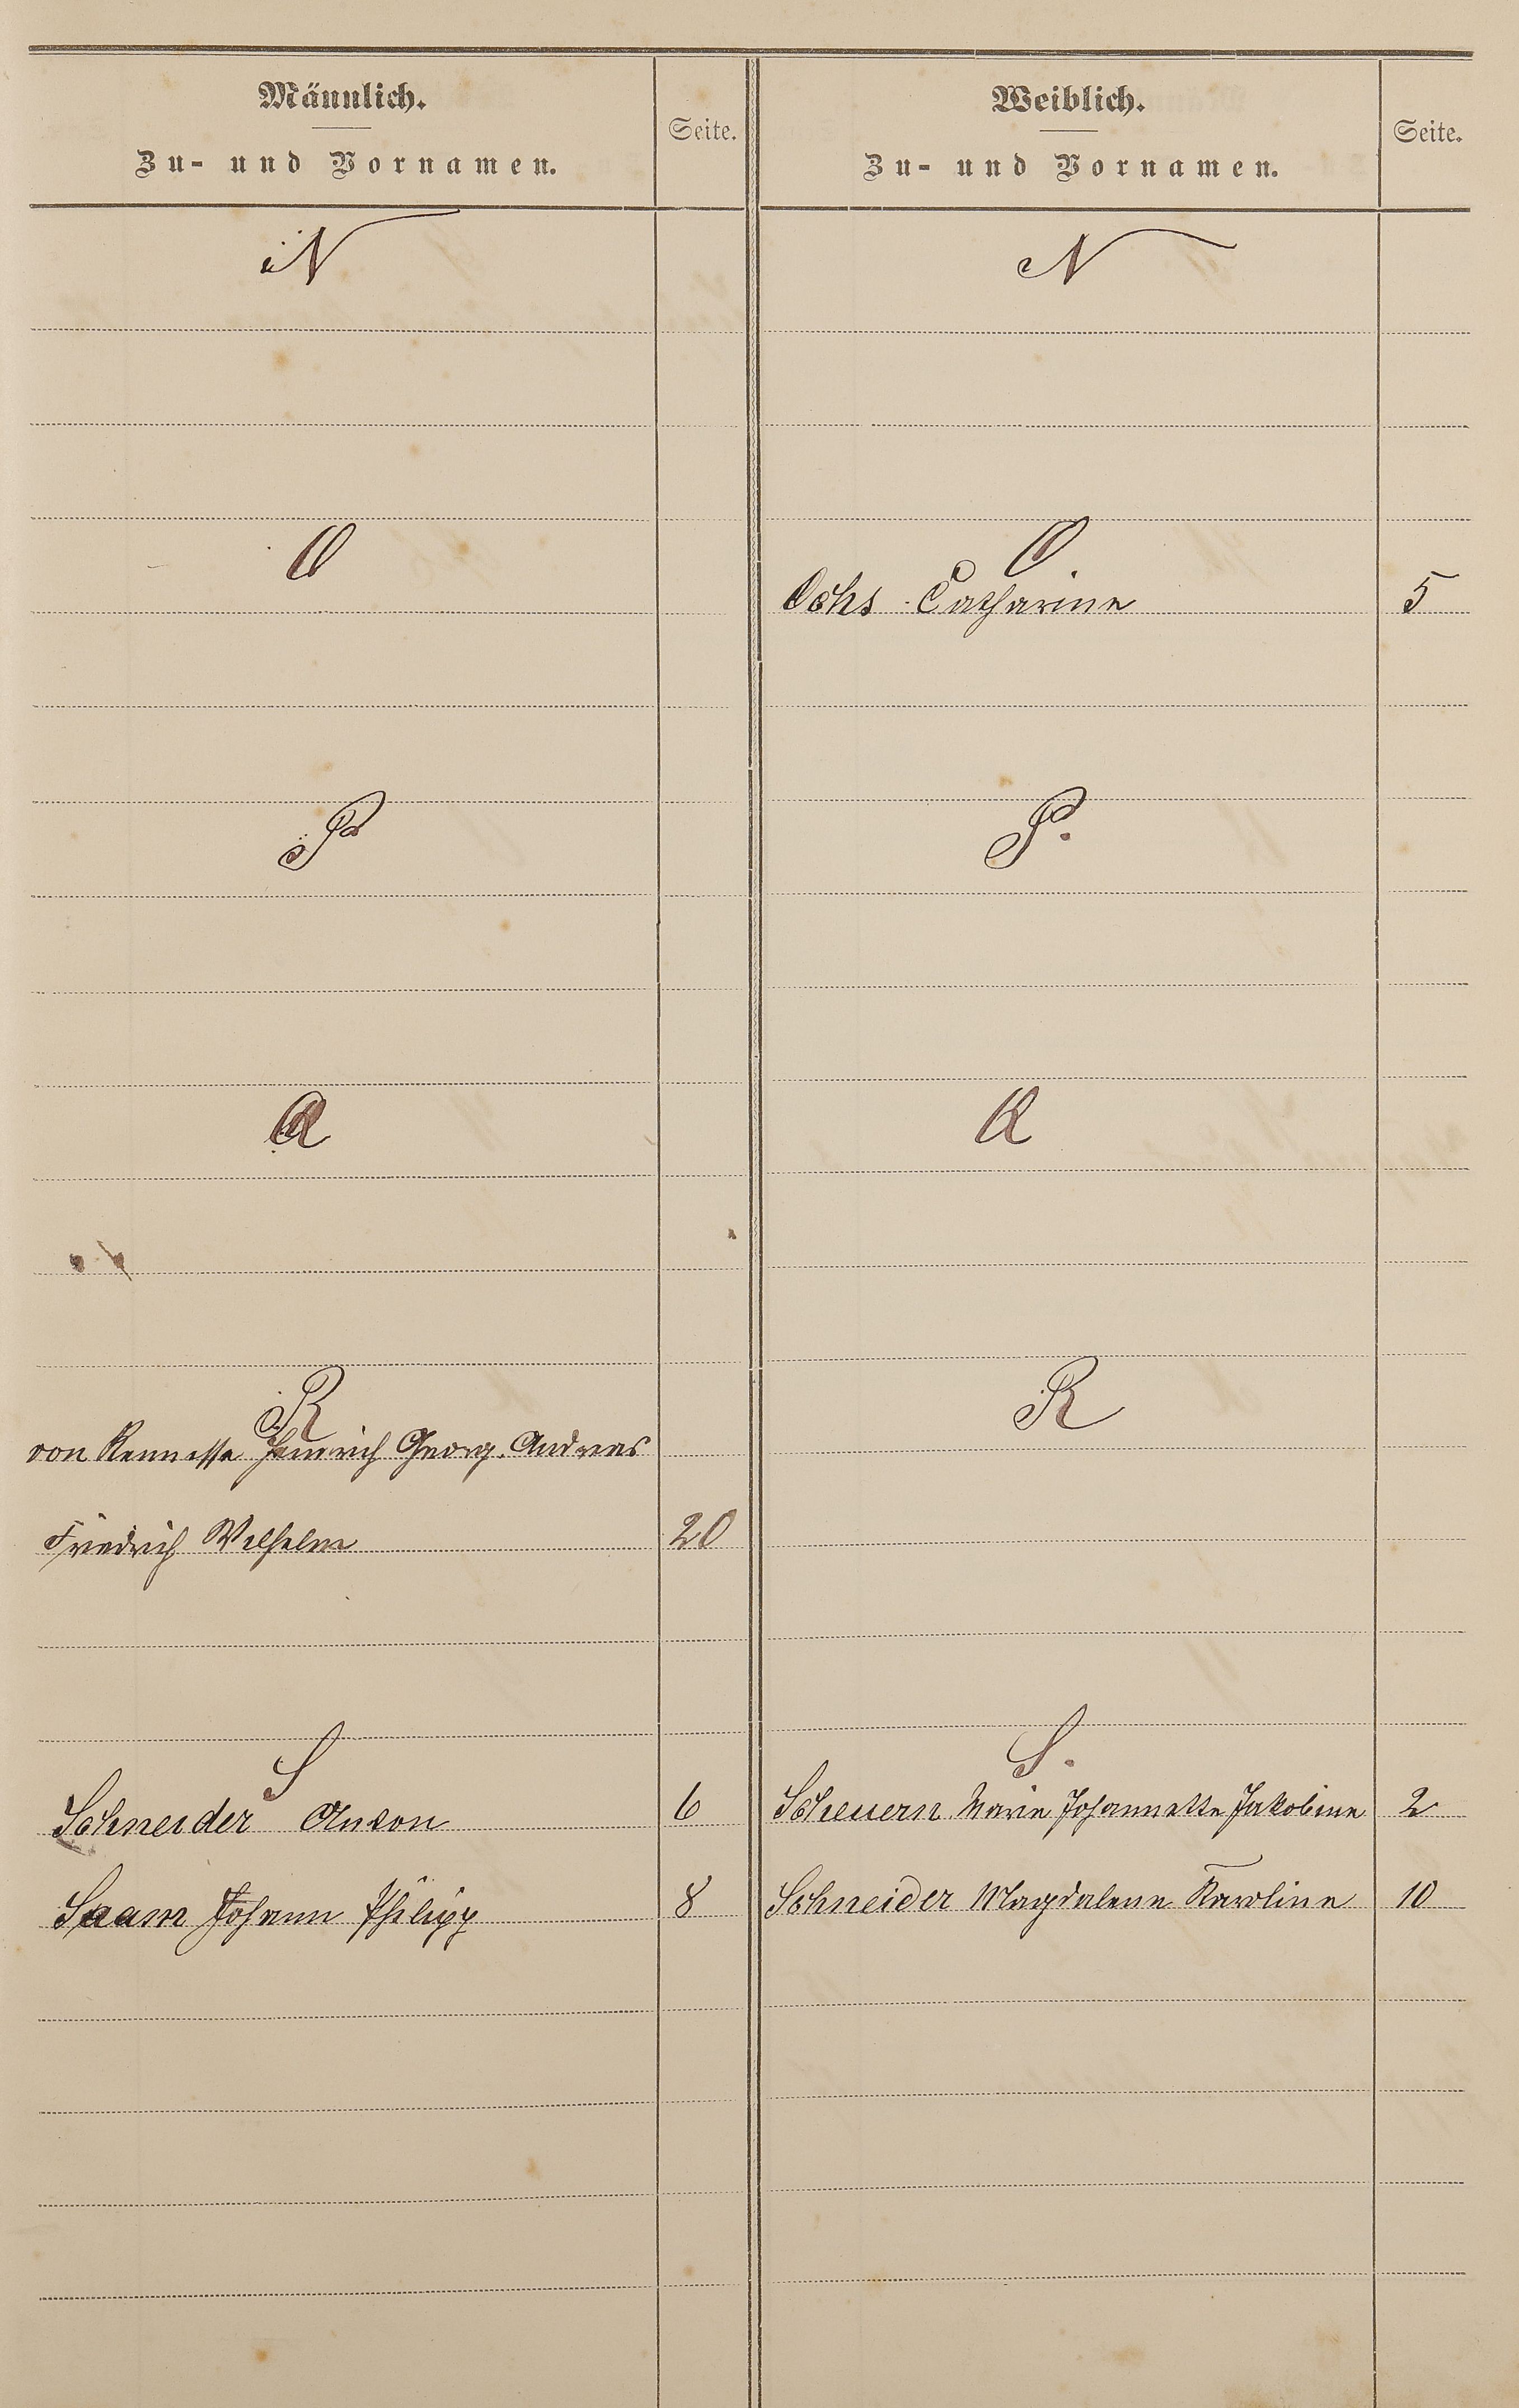 Männlich.
Zu- und Vornamen.
Seite.
Weiblich.
Zu- und Vornamen.
Seite.
N
N
O
O
Ochs Catharine 5
P
P.
Q
Q
R
R
von Rennesse Heinrich Georg. Andreas
Friedrich Wilhelm 20
S
S.
Schneider Anton 6
Scheuern Marie Johannette Jakobine 2
Saam Johann Philipp 8
Schneider Magdalene Karoline 10